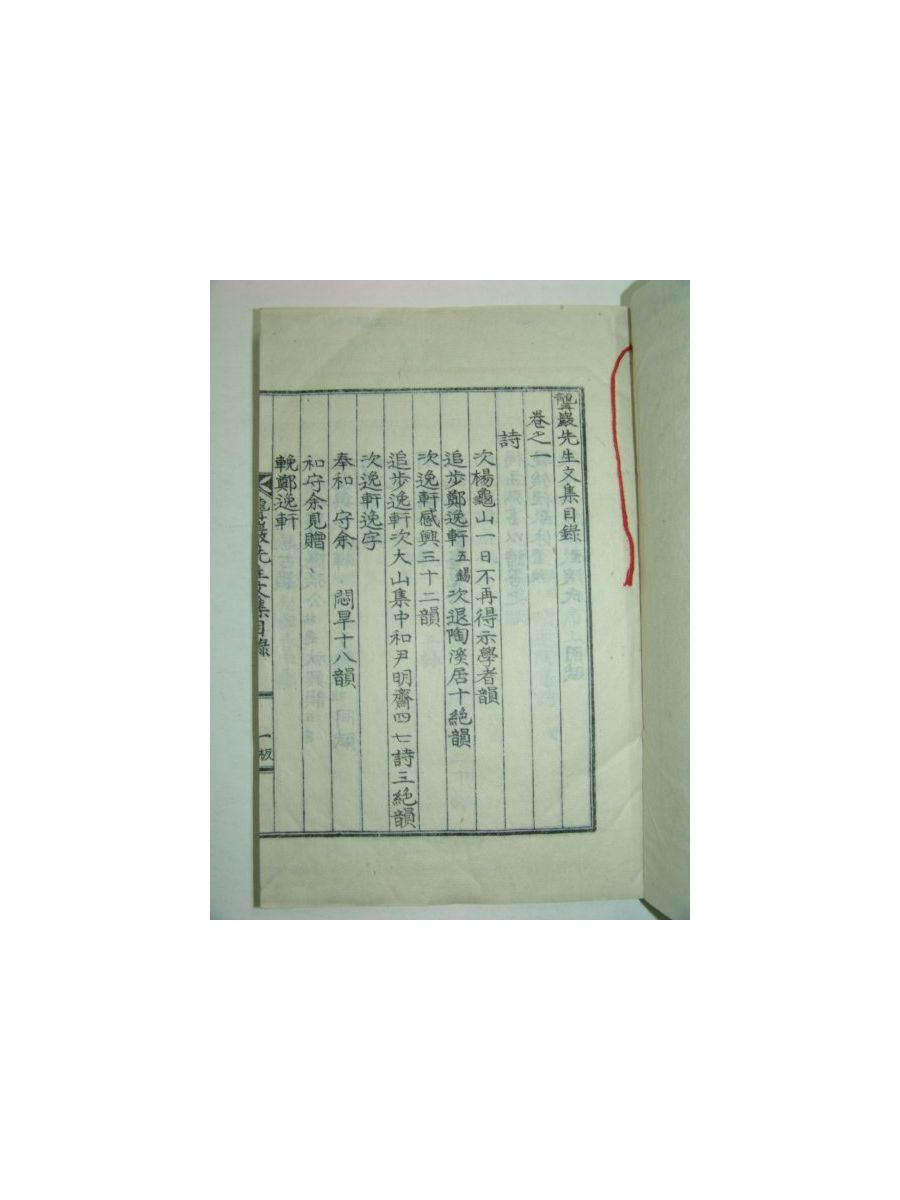 聾巖先生文集目錄
卷之一
詩
次楊龜山一日不再得示學者韻
追步鄭逸軒五錫次退陶溪居十絶韻
次逸軒感興三十二韻
追步逸軒次大山集中和尹明齋四七詩三絶韻
次逸軒逸字
奉和 守余 悶旱十八韻
和守余見贈
輓鄭逸軒
聾巖先生文集目錄 一 板